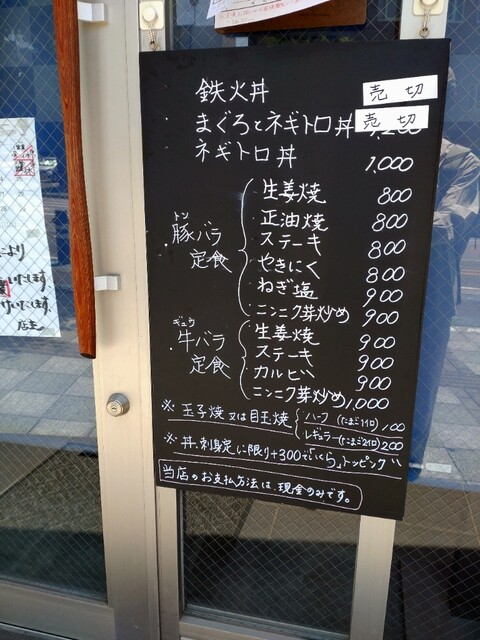 鉄火丼 売切
まぐろとネギトロ丼 売切
ネギトロ丼 1,000
豚バラ定食
トン
生姜焼 800
正油焼 800
ステーキ 800
やきにく 800
ねぎ塩 900
ニンニク芽炒め 900
牛バラ定食
ギュウ
生姜焼 900
ステーキ 900
カルビ 900
ニンニク芽炒め 1,000
※ 玉子焼又は目玉焼
ハーフ(たまご1コ) 100
レギュラー(たまご2コ) 200
※ 丼、刺身定に限り+300で「いくら」トッピング
当店のお支払方法は、現金のみです。
により
いたします
店主